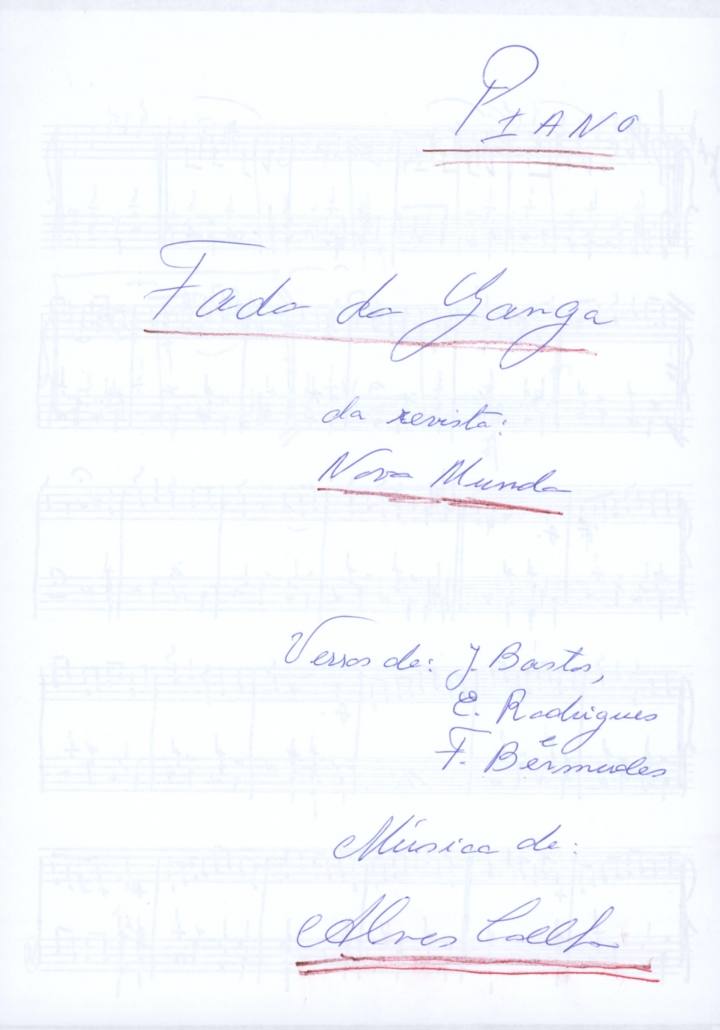 PIANO
Fado do Ganga
da revista:
Novo Mundo
Versos de: J Bastos,
E. Rodrigues
e
F. Bermudes
Música de:
Alves Coelho